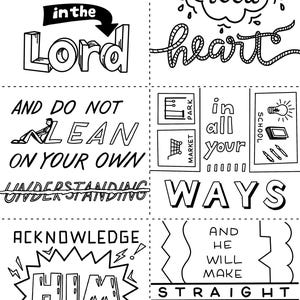 in the
Lord
heart
AND DO NOT
LEAN
ON YOUR OWN
UNDERSTANDING
PARK
MARKET
in
all
your
SCHOOL
WAYS
ACKNOWLEDGE
HIM
AND
HE
WILL
MAKE
STRAIGHT